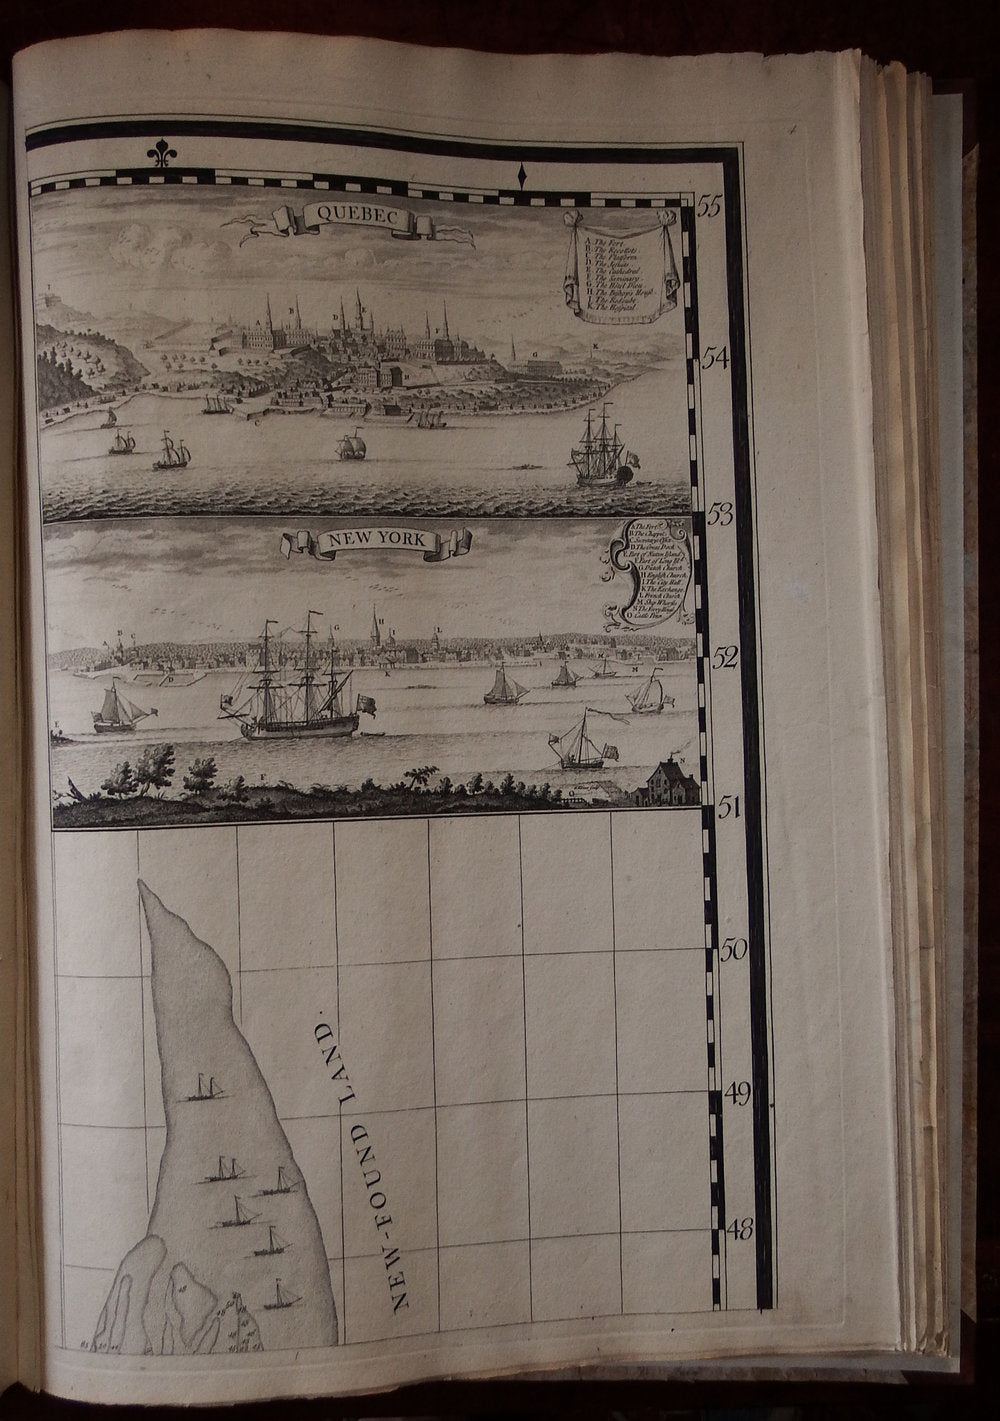 4
55
QUEBEC
A The Fort
B The Recollets
C The Platform
D The Jesuits
E The Cathedral
F The Seminary
G The Hôtel Dieu
H The Bishops House
I The Redoubt
K The Hospital
54
53
NEW YORK
A The Fort
B The Chappel
C Secretarys Office
D The Great Dock
F Part of Long Isld
G Dutch Church
H English Church
I The City Hall
K The Exchange
L French Church
M Ship Wharfs
N The Ferry House
O Cattle Penn
52
51
50
49
48
NEW-FOUND LAND.